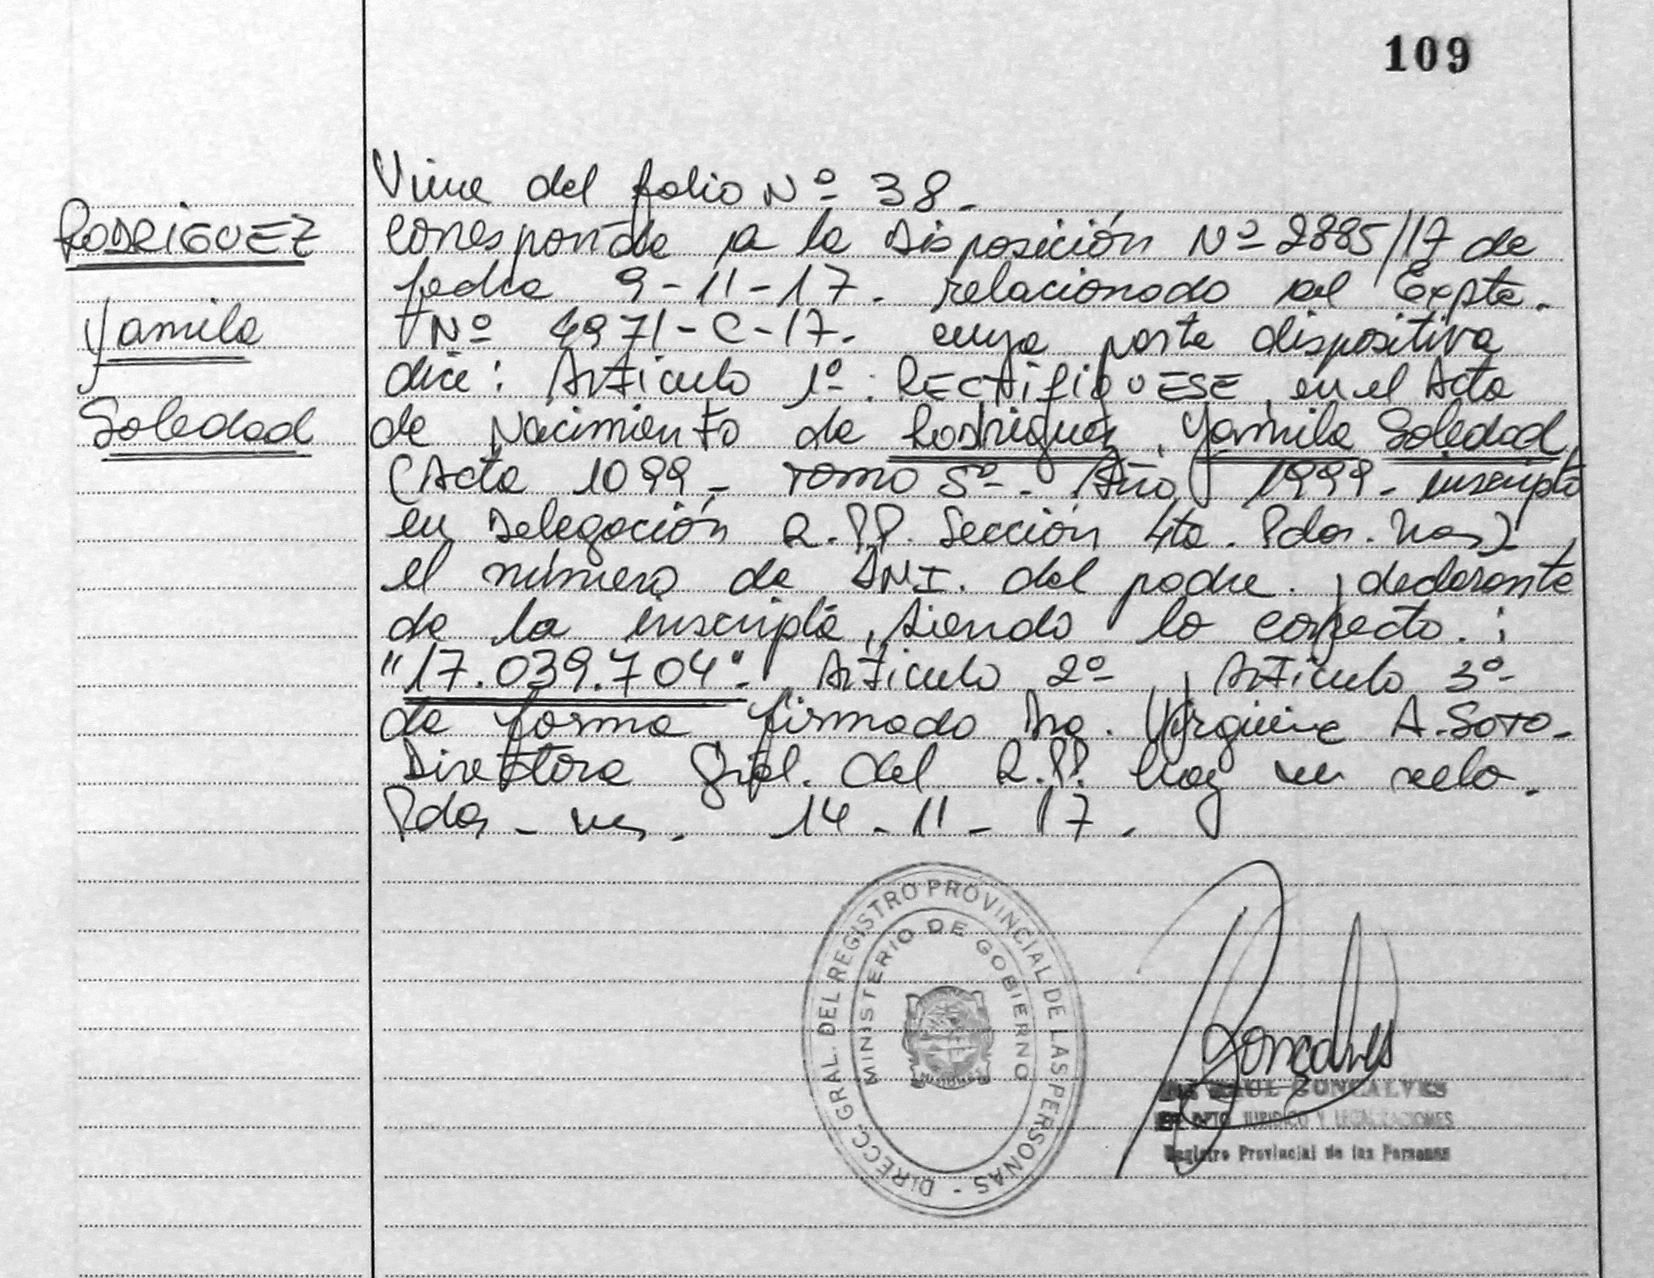 109
Viene del folio Nº 38.
RODRIGUEZ
corresponde a la Disposición Nº 2885/17 de
fecha 9-11-17. relacionado al Expte.
Yamila
Nº 4971-C-17. cuya parte dispositiva
dice: Artículo 1º: RECTIFIQUESE, en el Acta
Soledad
de Nacimiento de Rodriguez, Yamila Soledad,
(Acta 1099_ Tomo 5º_. Año 1999_ inscripta
en Delegación R.PP. Sección 4ta. Pdas. Mnes)
el número de DNI. del padre, declarante
de la inscripta, siendo lo correcto.:
"17.039.704". Artículo 2º, Artículo 3º
de forma firmado Dra. A. SOTO_
Directora Gral. del R.PP. hay un sello.
Pdas_ Mnes. 14_11_17.
DIRECC. GRAL. DEL REGISTRO PROVINCIAL DE LAS PERSONAS -
MINISTERIO DE GOBIERNO
MISIONES
Goncalves
RAUL GONCALVES
DPTO. JURIDICO Y LEGALIZACIONES
Registro Provincial de las Personas